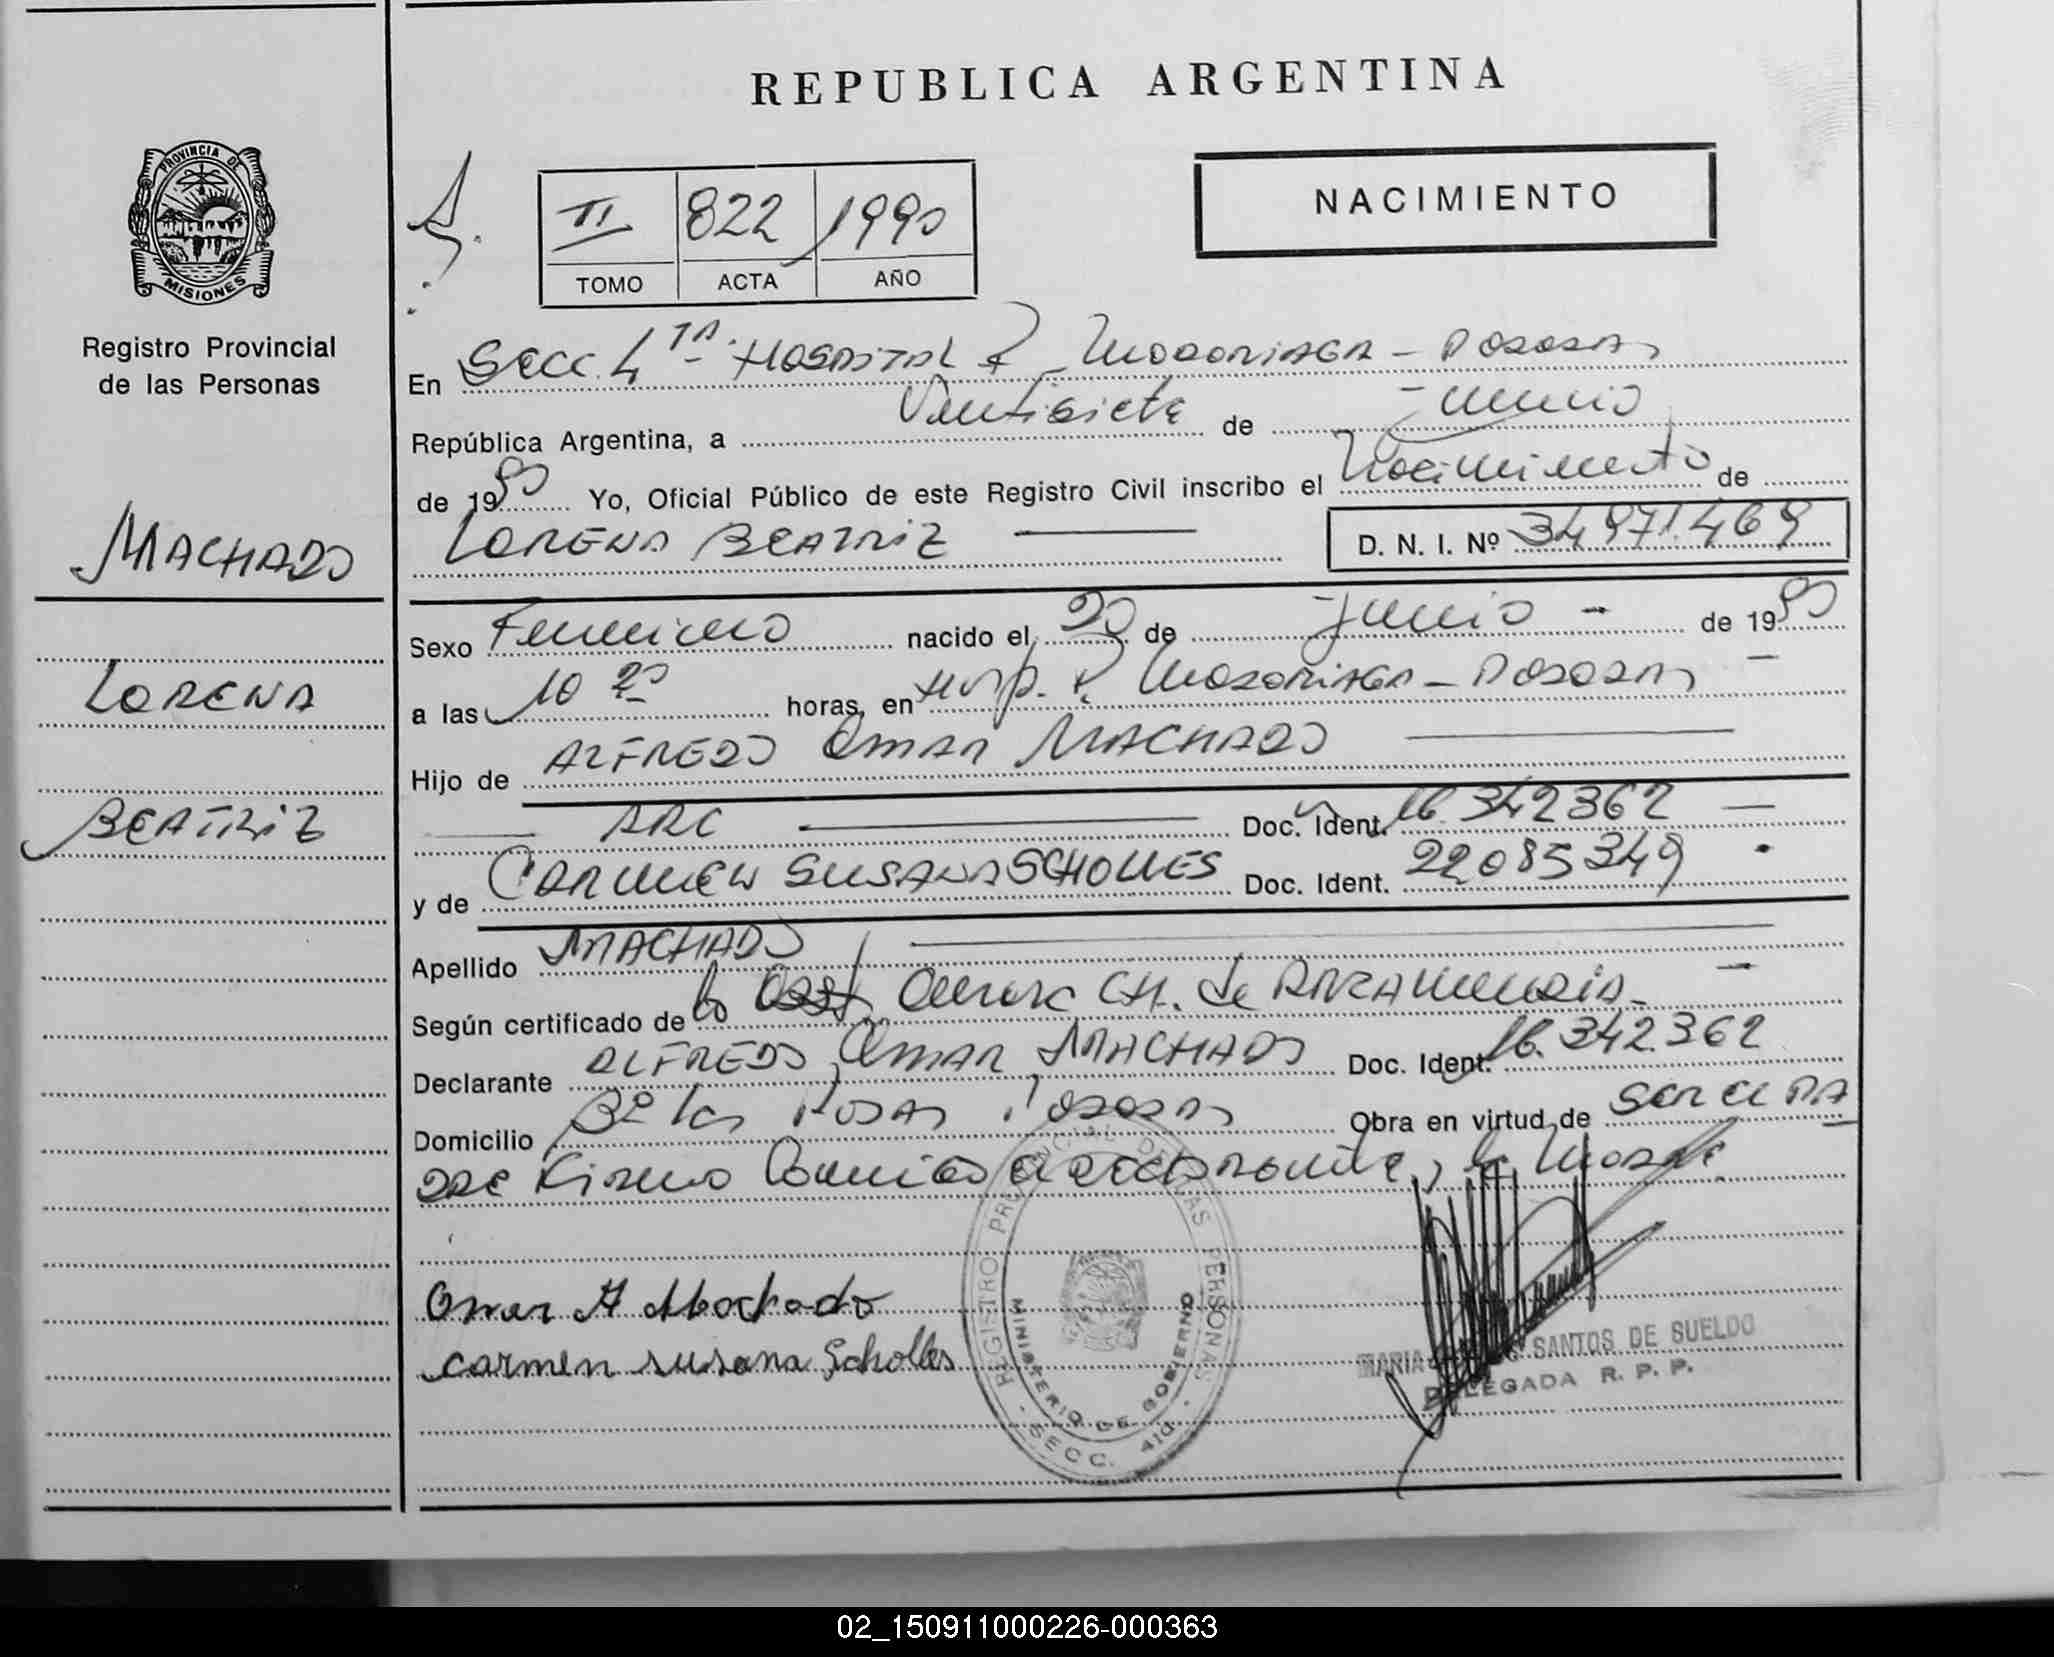 REPUBLICA ARGENTINA
PROVINCIA DE
MISIONES
Registro Provincial
de las Personas
II 822 1990
TOMO ACTA AÑO
NACIMIENTO
En Secc. 4TA. HOSPITAL R. MADARIAGA - POSADAS
República Argentina, a Veintisiete de Junio
de 1990 Yo, Oficial Público de este Registro Civil inscribo el Nacimiento de
LORENA BEATRIZ D. N. I. Nº 34971.469
MACHADO
LORENA
BEATRIZ
Sexo Femenino nacido el 20 de Junio - de 1990
a las 10 20 horas, en Hosp. R. MADARIAGA - POSADAS -
Hijo de ALFREDO OMAR MACHADO
ARG Doc. Ident. 16.342362
y de CARMEN SUSANA SCHOLLES Doc. Ident. 22085349
Apellido MACHADO
Según certificado de la CH. de
Declarante ALFREDO OMAR MACHADO Doc. Ident. 16.342.362
Domicilio Bº Las ROSAS POSADAS Obra en virtud de SER EL PA
DRE Firma la Madre
Omar A Machado
carmen susana Scholles
REGISTRO PROVINCIAL DE LAS PERSONAS
MINISTERIO DE GOBIERNO
- SECC. 4ta. -
MARIA SANTOS DE SUELDO
DELEGADA R. P. P.
02_150911000226-000363